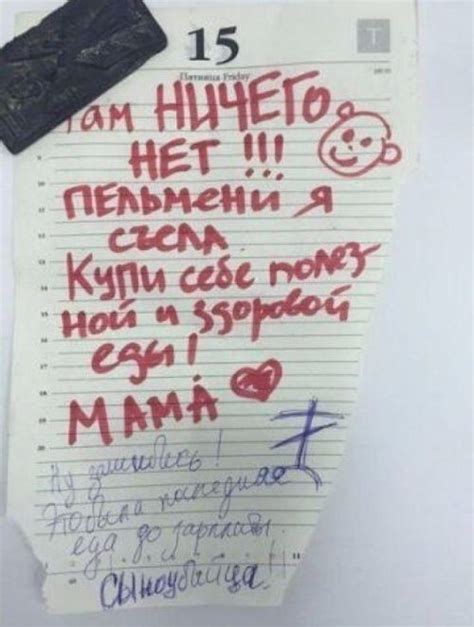 15
Пятница Friday
Там НИЧЕГО
НЕТ !!!
ПЕЛЬМЕНИ Я
съела
Купи себе полез-
ной и здоровой
еды!
МАМА
Ну зашибись!
Это была последняя
еда до зарплаты.
Сыноубийца!